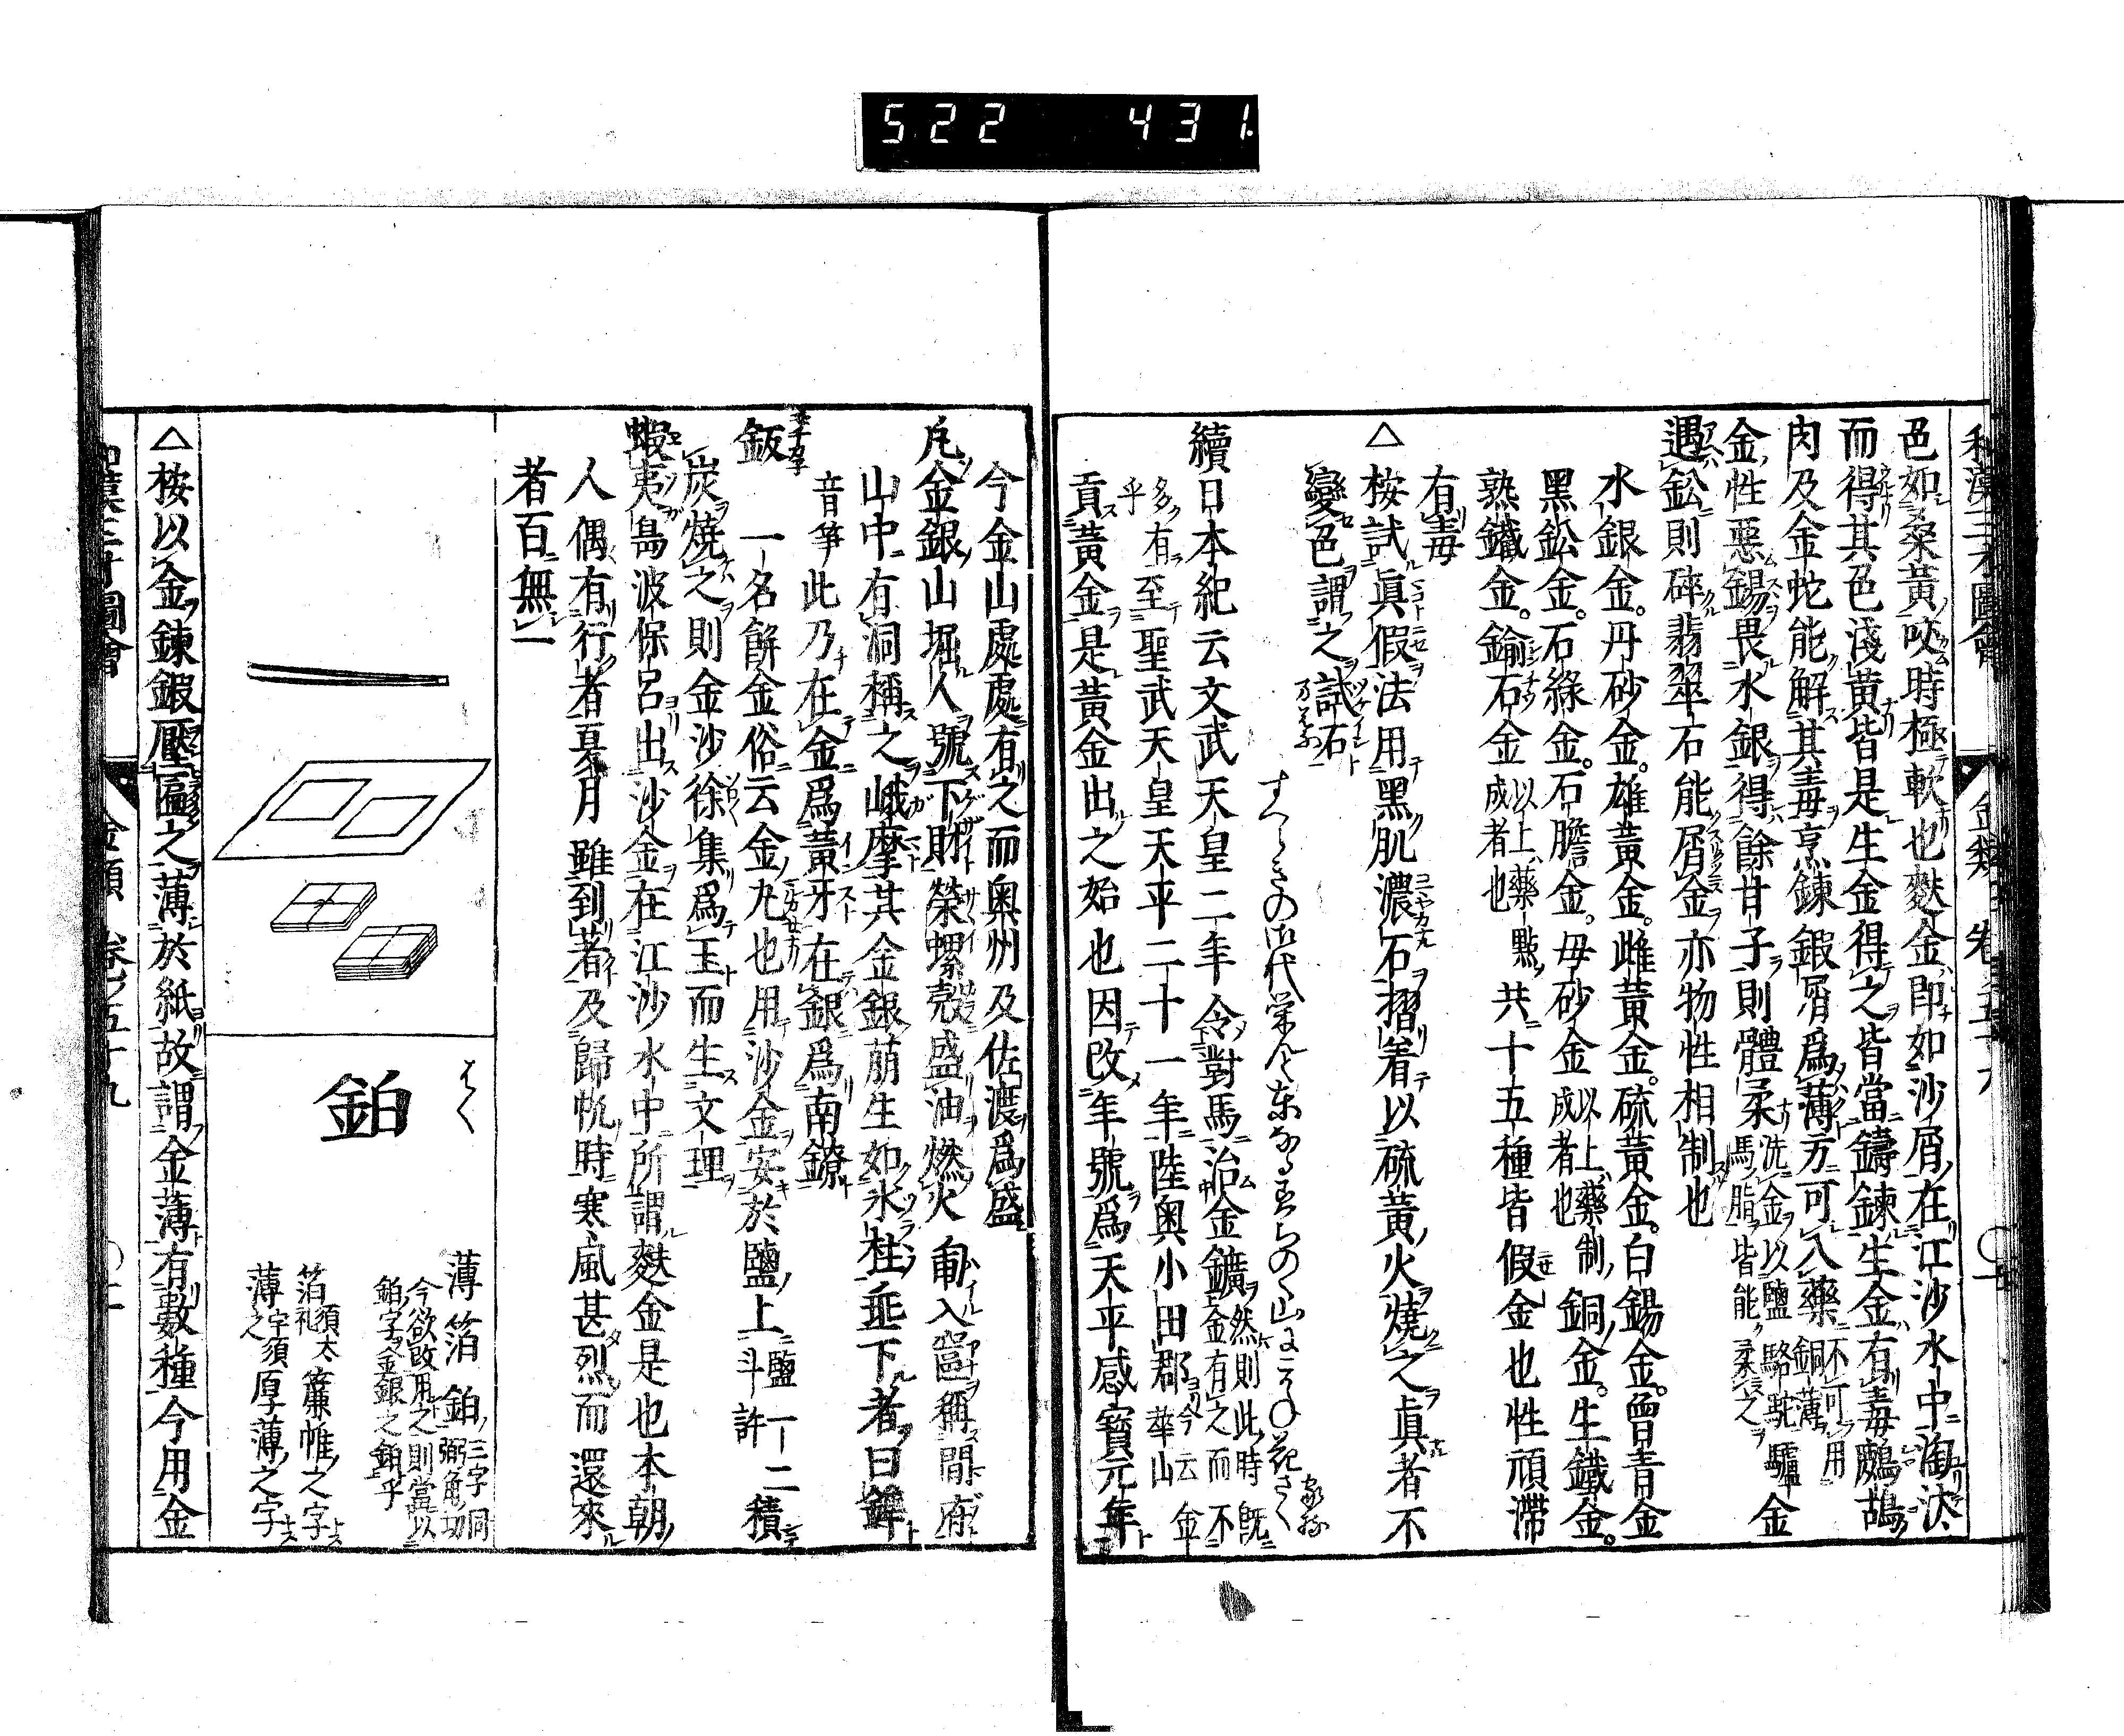 522 431
和漢三才圖會 金類 卷五十九
色如桑黃咬時極軟也麩金即如沙屑在江沙水中淘汰
而得其色淺黃皆是生金得之皆當鑄鍊生金有毒鷓鴣
肉及金蛇能解其毒烹鍊鍜屑爲薄方可入藥不可用銅薄
金性惡錫畏水銀得餘甘子則體柔洗金以鹽駱駝驢馬脂皆能柔之金
遇鈆則碎翡翠石能屑金亦物性相制也
水銀金。丹砂金。雄黃金。雌黃金。硫黃金。白錫金。曾青金
黑鈆金。石綠金。石膽金。毋砂金以上藥制成者也銅金。生鐵金。
熟鐵金。鍮石金以上藥點成者也共十五種皆假金也性頑滯
有毒
△桉試眞假法用黑肌濃石摺着以硫黃火燒之眞者不
變色謂之試石
續日本紀云文武天皇二年令對馬治金鑛金有之而不多有乎然則此時既
至聖武天皇天平二十一年陸奧小田郡今云金華山
貢黃金是黃金出之始也因改年號爲天平感寶元年
今金山處處有之而奧州及佐渡爲盛
凡金銀山堀人號下財榮螺殼盛油燃火匍入窟稱間府
山中有洞稱之峨摩其金銀萠生如氷柱垂下者曰鉾
音筝此乃在金爲黃牙在銀爲南鐐
鈑 一名餅金俗云金丸也用沙金安於鹽上鹽一斗許二積
炭燒之則金沙徐集爲玉而生文理
蝦夷島波保呂出沙金在江沙水中所謂麩金是也本朝
人偶有行者夏月雖到着及歸帆時寒風甚烈而還來
者百無一
はく
鉑
薄 箔 鉑三字同
今欲改用之則當以
鉑字金銀之鉑乎
箔須太礼簾帷之字
薄字須之厚薄之字
△桉以金鍊鍜壓匾之薄於紙故謂金薄有數種今用金
和漢三才圖會 金類 卷之五十九